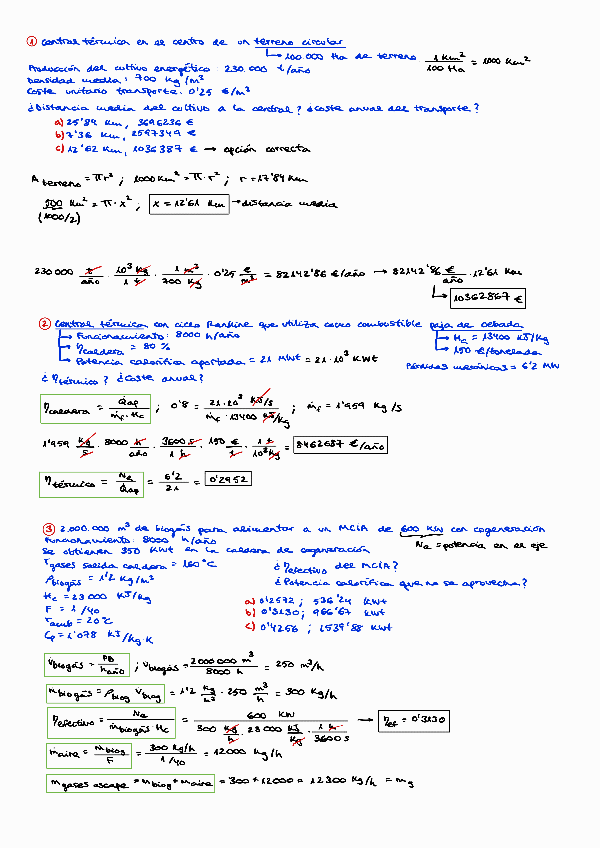 ① Central térmica en el centro de un terreno circular
↳ 100.000 Ha de terreno 1 Km² / 100 Ha = 1000 Km²
Producción del cultivo energético: 230.000 t/año
Densidad media: 700 Kg/m³
Coste unitario transporte: 0'25 €/m³
¿Distancia media del cultivo a la central? ¿Coste anual del transporte?
a) 25'84 Km, 3696236 €
b) 7'36 Km, 2597349 €
c) 12'62 Km, 1036387 € → opción correcta
A terreno = πr² ; 1000 Km² = π·r² ; r = 17'84 Km
500 Km² = π·x² ; x = 12'61 Km → distancia media
(1000/2)
230000 t/año · 10³ Kg / 1 t · 1 m³ / 700 Kg · 0'25 €/m³ = 82142'86 €/año → 82142'86 €/año · 12'61 Km
↳ 10362867 €
② Central térmica con ciclo Rankine que utiliza como combustible paja de cebada
↳ Funcionamiento: 8000 h/año ↳ Hc = 13400 KJ/Kg
↳ η caldera = 80 % ↳ 150 €/tonelada
↳ Potencia calorífica aportada = 21 MWt = 21·10³ KWt Pérdidas mecánicas = 6'2 MW
¿η térmico? ¿Coste anual?
η caldera = Q̇ap / ṁf·Hc ; 0'8 = 21·10³ KJ/s / ṁf·13400 KJ/Kg ; ṁf = 1'959 Kg/s
1'959 Kg/s · 8000 h/año · 3600 s / 1 h · 150 €/t · 1 t / 10³Kg = 8462687 €/año
η térmico = Ne / Q̇ap = 6'2 / 21 = 0'2952
③ 2.000.000 m³ de biogás para alimentar a un MCIA de 600 KW con cogeneración
Funcionamiento: 8000 h/año Ne = potencia en el eje
Se obtienen 350 KWt en la caldera de cogeneración
T gases salida caldera = 160°C ¿η efectivo del MCIA?
ρ biogás = 1'2 Kg/m³ ¿Potencia calorífica que no se aprovecha?
Hc = 23000 KJ/Kg a) 0'2572 ; 536'24 KWt
F = 1/40 b) 0'3130 ; 966'67 KWt
T amb = 20°C c) 0'4256 ; 1539'88 KWt
Cp = 1'078 KJ/Kg·K
V̇ biogás = PB / h año ; V̇ biogás = 2000000 m³ / 8000 h = 250 m³/h
ṁ biogás = ρ biog V̇ biog = 1'2 Kg/m³ · 250 m³/h = 300 Kg/h
η efectivo = Ne / ṁ biogás Hc = 600 KW / 300 Kg/h · 23000 KJ/Kg · 1 h / 3600 s → η ef = 0'3130
ṁ aire = ṁ biog / F = 300 Kg/h / 1/40 = 12000 Kg/h
ṁ gases escape = ṁ biog + ṁ aire = 300 + 12000 = 12300 Kg/h = ṁg